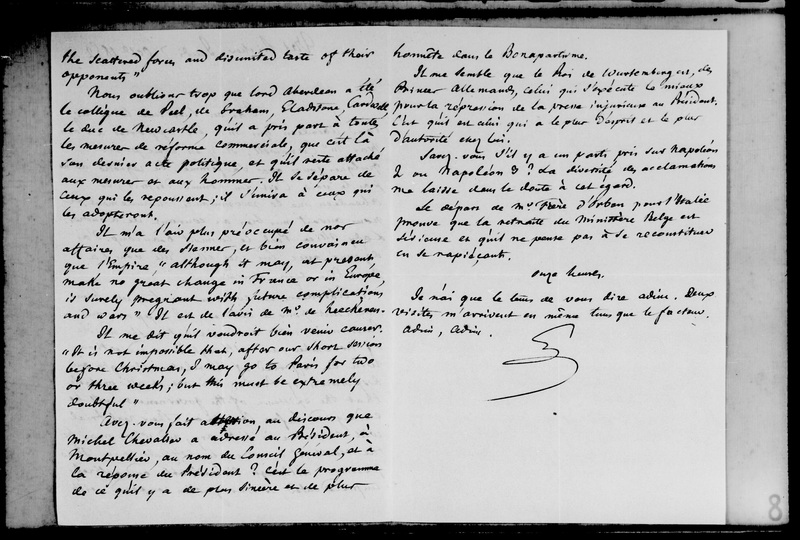 the scattered forces and disunited taste of their
opponents"
Nous oublions trop que lord Aberdeen a été
le collègue de Peel, de Graham, Gladstone, Cardwell
le duc de Newcastle, qu'il a pris part à toutes
les mesures de réforme commerciale, que c'est là
son dernier acte politique, et qu'il reste attaché
aux mesures et aux hommes. Il se sépare de
ceux qui les repoussent; il s'unira à ceux qui
les adopteront.
Il m'a l'air plus préoccupé de nos
affaires que des siennes, et bien convaincu
que l'Empire, "although it may, at present,
make no great change in France or in Europe,
is surely pregnant with future complications
and wars" Il est de l'avis de Mr. de heeckeren.
Il me dit qu'il voudroit bien venir causer.
"It is not impossible that, after our short session
before Christmas, I may go to Paris for two
or three weeks; but this must be extremely
doubtful"
Avez-vous fait attention, au discours que
Michel Chevalier a adressé au Président, à
Montpellier, au nom du Conseil général, et à
la réponse du Président? C'est le programme
de ce qu'il y a de plus sincère et de plus
honnête dans le Bonapartisme.
Il me semble que le Roi de Wurtemberg est, des
Princes Allemands, celui qui s'exécute le mieux
pour la répression de la presse injurieuse au Président.
C'est qu'il est celui qui a le plus d'esprit et le plus
d'autorité chez lui.
Savez-vous s'il y a un parti pris sur Napoléon
2 ou Napoléon 3? La diversité des acclamations
me laisse dans le doute à cet égard.
Le départ de Mr. Frère d'Orban pour l'Italie
prouve que la retraite du Ministère Belge est
sérieuse et qu'il ne pense pas à se reconstituer
en se rapiéçant.
onze heures.
Je n'ai que le tems de vous dire adieu. Deux
visites m'arrivent en même tems que le facteur.
adieu, adieu.
8